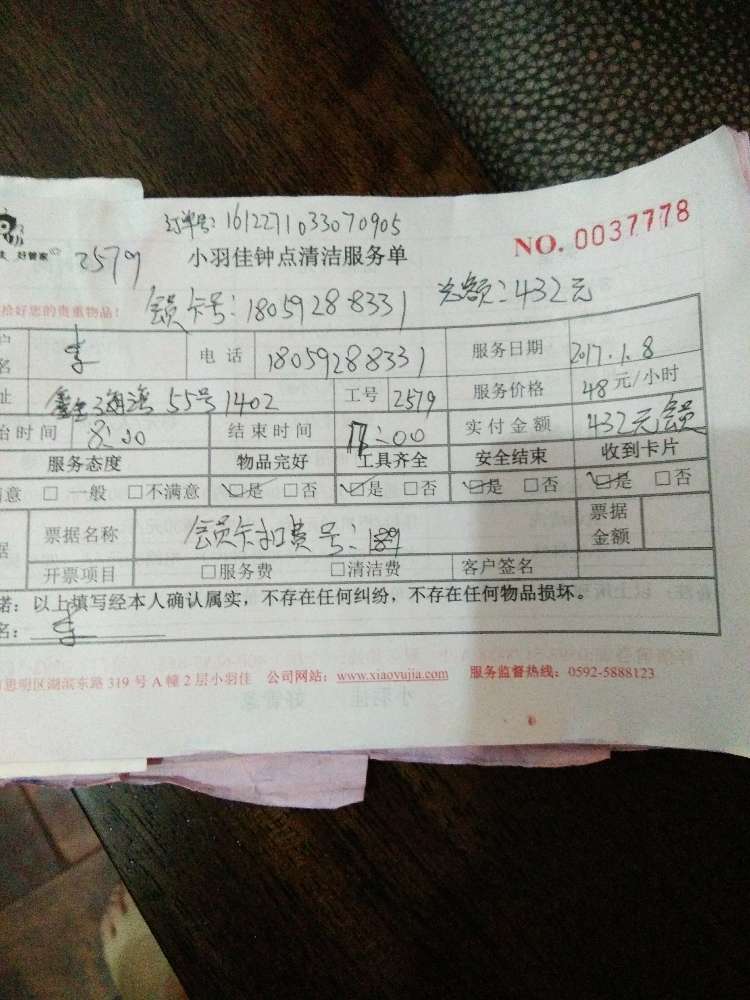 订单号:1612271033070905
NO. 0037778
好管家
2579
小羽佳钟点清洁服务单
拾好您的贵重物品!
会员卡号:18059288331 总额:432元
户 名 李 电 话 18059288331 服务日期 2017.1.8
址 55号1402 工号 2579 服务价格 48元/小时
始时间 8:00 结束时间 17:00 实付金额 432元会员
服务态度 物品完好 工具齐全 安全结束 收到卡片
满意 □一般 □不满意 ☑是 □否 ☑是 □否 ☑是 □否 ☑是 □否
据 票据名称 会员卡扣费 号: 票据金额
开票项目 □服务费 □清洁费 客户签名
诺:以上填写经本人确认属实,不存在任何纠纷,不存在任何物品损坏。
名:李
思明区湖滨东路 319 号 A 幢 2 层小羽佳 公司网站:www.xiaoyujia.com 服务监督热线:0592-5888123